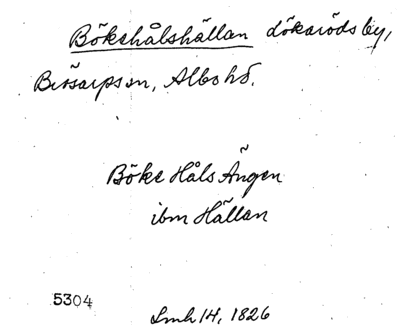 Bökehålshällan Lökaröds by,
Brösarps sn, Albo hd.
Böke Håls Ängen
ibm Hällan
5304
Lmh 14, 1826